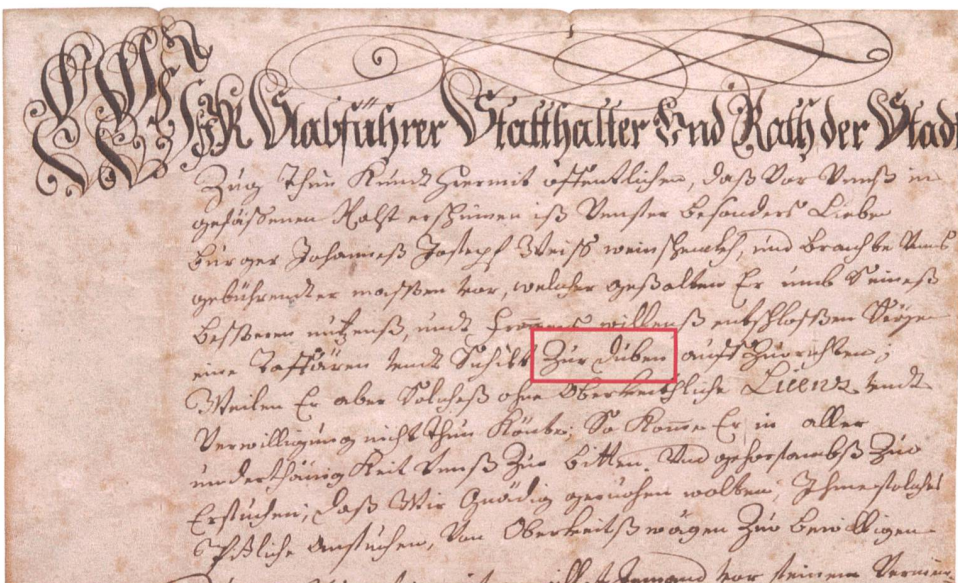 WIR Stabführer Statthalter Und Rath der Stadt
Zug Thun Kundt hiermit offentlichen, daß Vor Unnß in
gesässenen Raht erschinen ist Unnser besonders Liebe
burger Johanneß Josteph Weiss weinschenckh, und brachte Unns
gebührendter massen vor, welcher gestalten Er umb Seineß
besseren nutzenß, undt willenß entschlossen Seye
eine Taffären undt Schilt Zur Duben aufzurichten;
Weilen Er aber Solcheß ohne Oberkeithliche Licenz undt
Verwilligung nicht thun Könte; So Komme Er in aller
underthänigkeit Unnß Zue bitten, Und gehorsambst Zue
Ersuchen; daß Wir Gnädig geruohen wolten; Ihme solches
ansuchen, Von Oberkeitß wägen Zue bewilligen
Jemand vor seinem